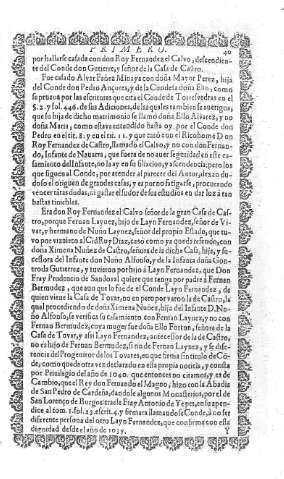 PRIMERO. 40
por hallarse casada con don Roy Fernandez el Calvo, descendien-
te del Conde don Gutierre, y señor de la Casa de Castro.
Fue casado Alvar Fañez Minaya con doña Mayor Perez, hija
del Conde don Pedro Ançures, y de la Condesa doña Ello, como
se prueva por las escrituras que citò el Conde de
que su hija de dicho matrimonio se llamò doña Ello Alvarez, y no
doña Maria, como estava entendido hasta oy por el Conde don
Pedro en el tit. 8. y en el tit. 11. y que casò con el Ricohome D.
Roy Fernandez de Castro, llamado el Calvo, y no con don Fernan-
do, Infante de Navarra, que fuera de no aver seguridad en este ca-
samiento del Infante, no la ay en su filiacion, y ascendencia; pero los
que siguen al Conde, por atender al parecer del Autor, dexan du-
doso el origen de grandes casas, y es parno fatigarse, procurando
vencer tantas dudas, ni gastar el sudor de sus estudios en dar luz à tan
bastas tinieblas.
Era don Roy Fernandez el Calvo señor de la gran Casa de Cas-
tro, porque Fernan Laynez, hijo de Layn Fernandez, señor de Vi-
var, y hermano de Nuño Laynez, señor del propio Estado, que tu-
vo por viznieto al Cid Ruy Diaz, casò como ya queda referido, con
doña Ximena Nuñez de Castro, señora de la dicha Casa, hija, y su-
cessora del Infante don Nuño Alfonso, y de la Infanta doña Gon-
troda Gutierrez, y tuvieron por hijo à Layn Fernandez, que Don
Fray Prudencio de Sandoval quiere que tenga por padre à Fernan
Bermudez, aunque aun lo fue de el Conde Layn Fernandez, de
quien viene la Casa de Tovar, no en pero por varon la de Castro, la
qual procediendo de doña Ximena Nuñez, hija del Infante D. Nu-
ño Alfonso, se verifica su casamiento con Fernan Laynez, y no con
Fernan Bermudez, cuya muger fue doña Ello Forton, señora de la
Casa de Tovar, y assi Layn Fernandez, antecessor de la de Castro,
no es hijo de Fernan Bermudez, sino de Fernan Laynez, y se dife-
rencia del Progenitor de los Tovares, en que firma sin titulo de Cõ-
de, como quede otra vez declarado en esta propia noticia, y consta
por Privilegio del año de 1040. que entonces no citamos, y es de
Cambio, que el Rey don Fernando el Magno, hizo con la Abadia
de San Pedro de Cardeña, dandole algunos Monasterios, por el de
San Lorenço de Burgos: traele Fray Antonio de Yepes, en lo apen-
dice al tom. 1. fol. 23. escrit. 4. y firma se llamandose Conde, à no ser
diferente persona del otro Layn Fernandez, que confirma con esta
dignidad desde el año de 1039.